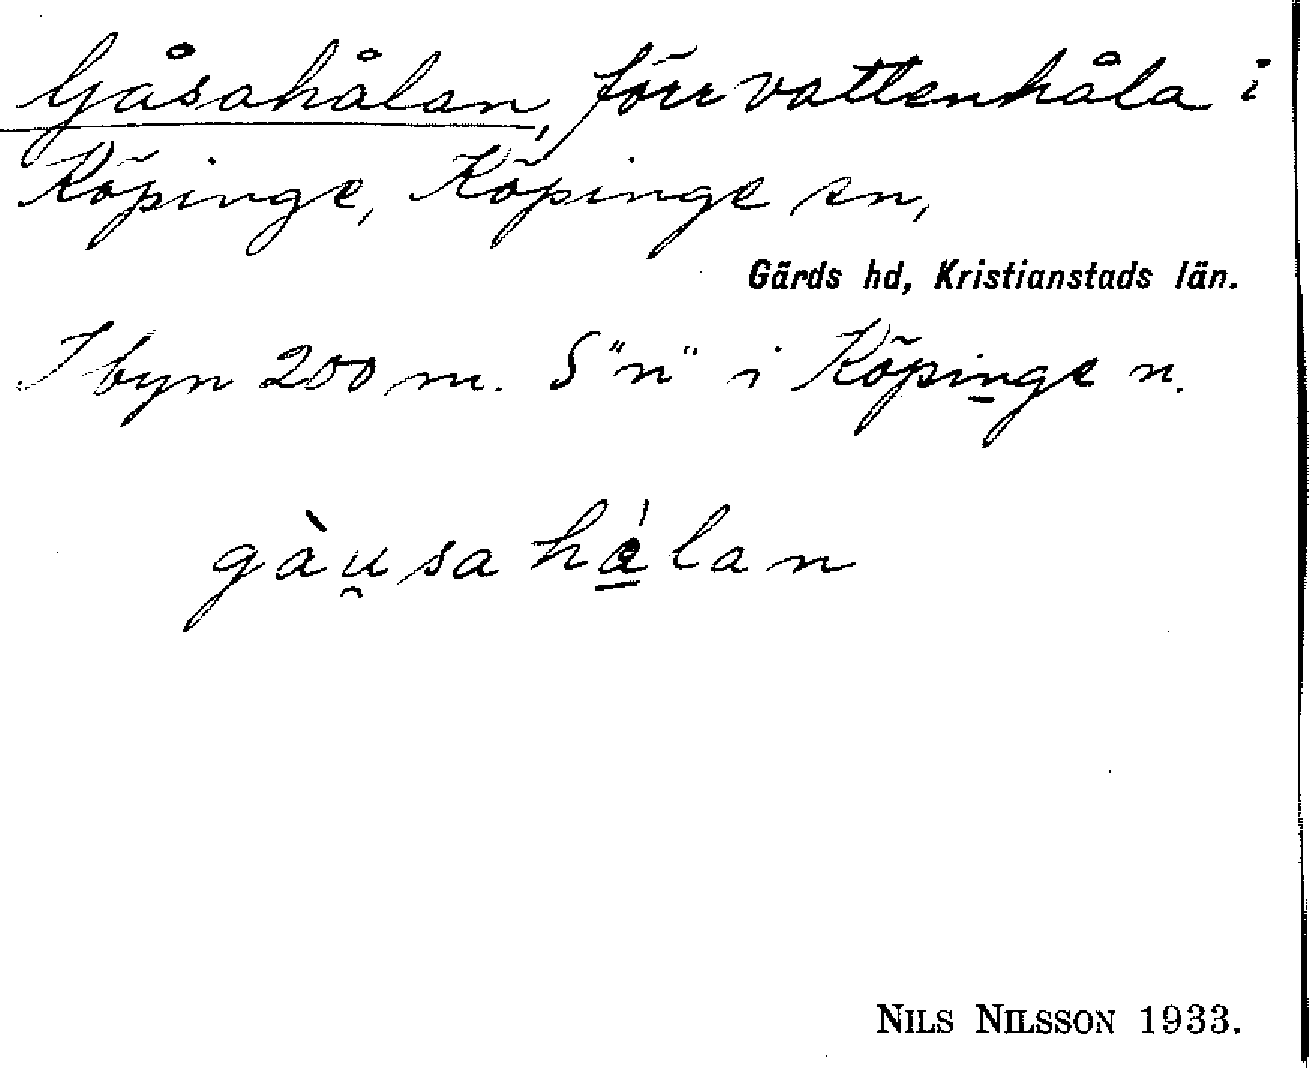 Gåsahålan, förr vattenhåla i
Köpinge, Köpinge sn,
Gärds hd, Kristianstads län.
I byn 200 m. S "n" i Köpinge n.
gàu̯sahá̱lan
NILS NILSSON 1933.